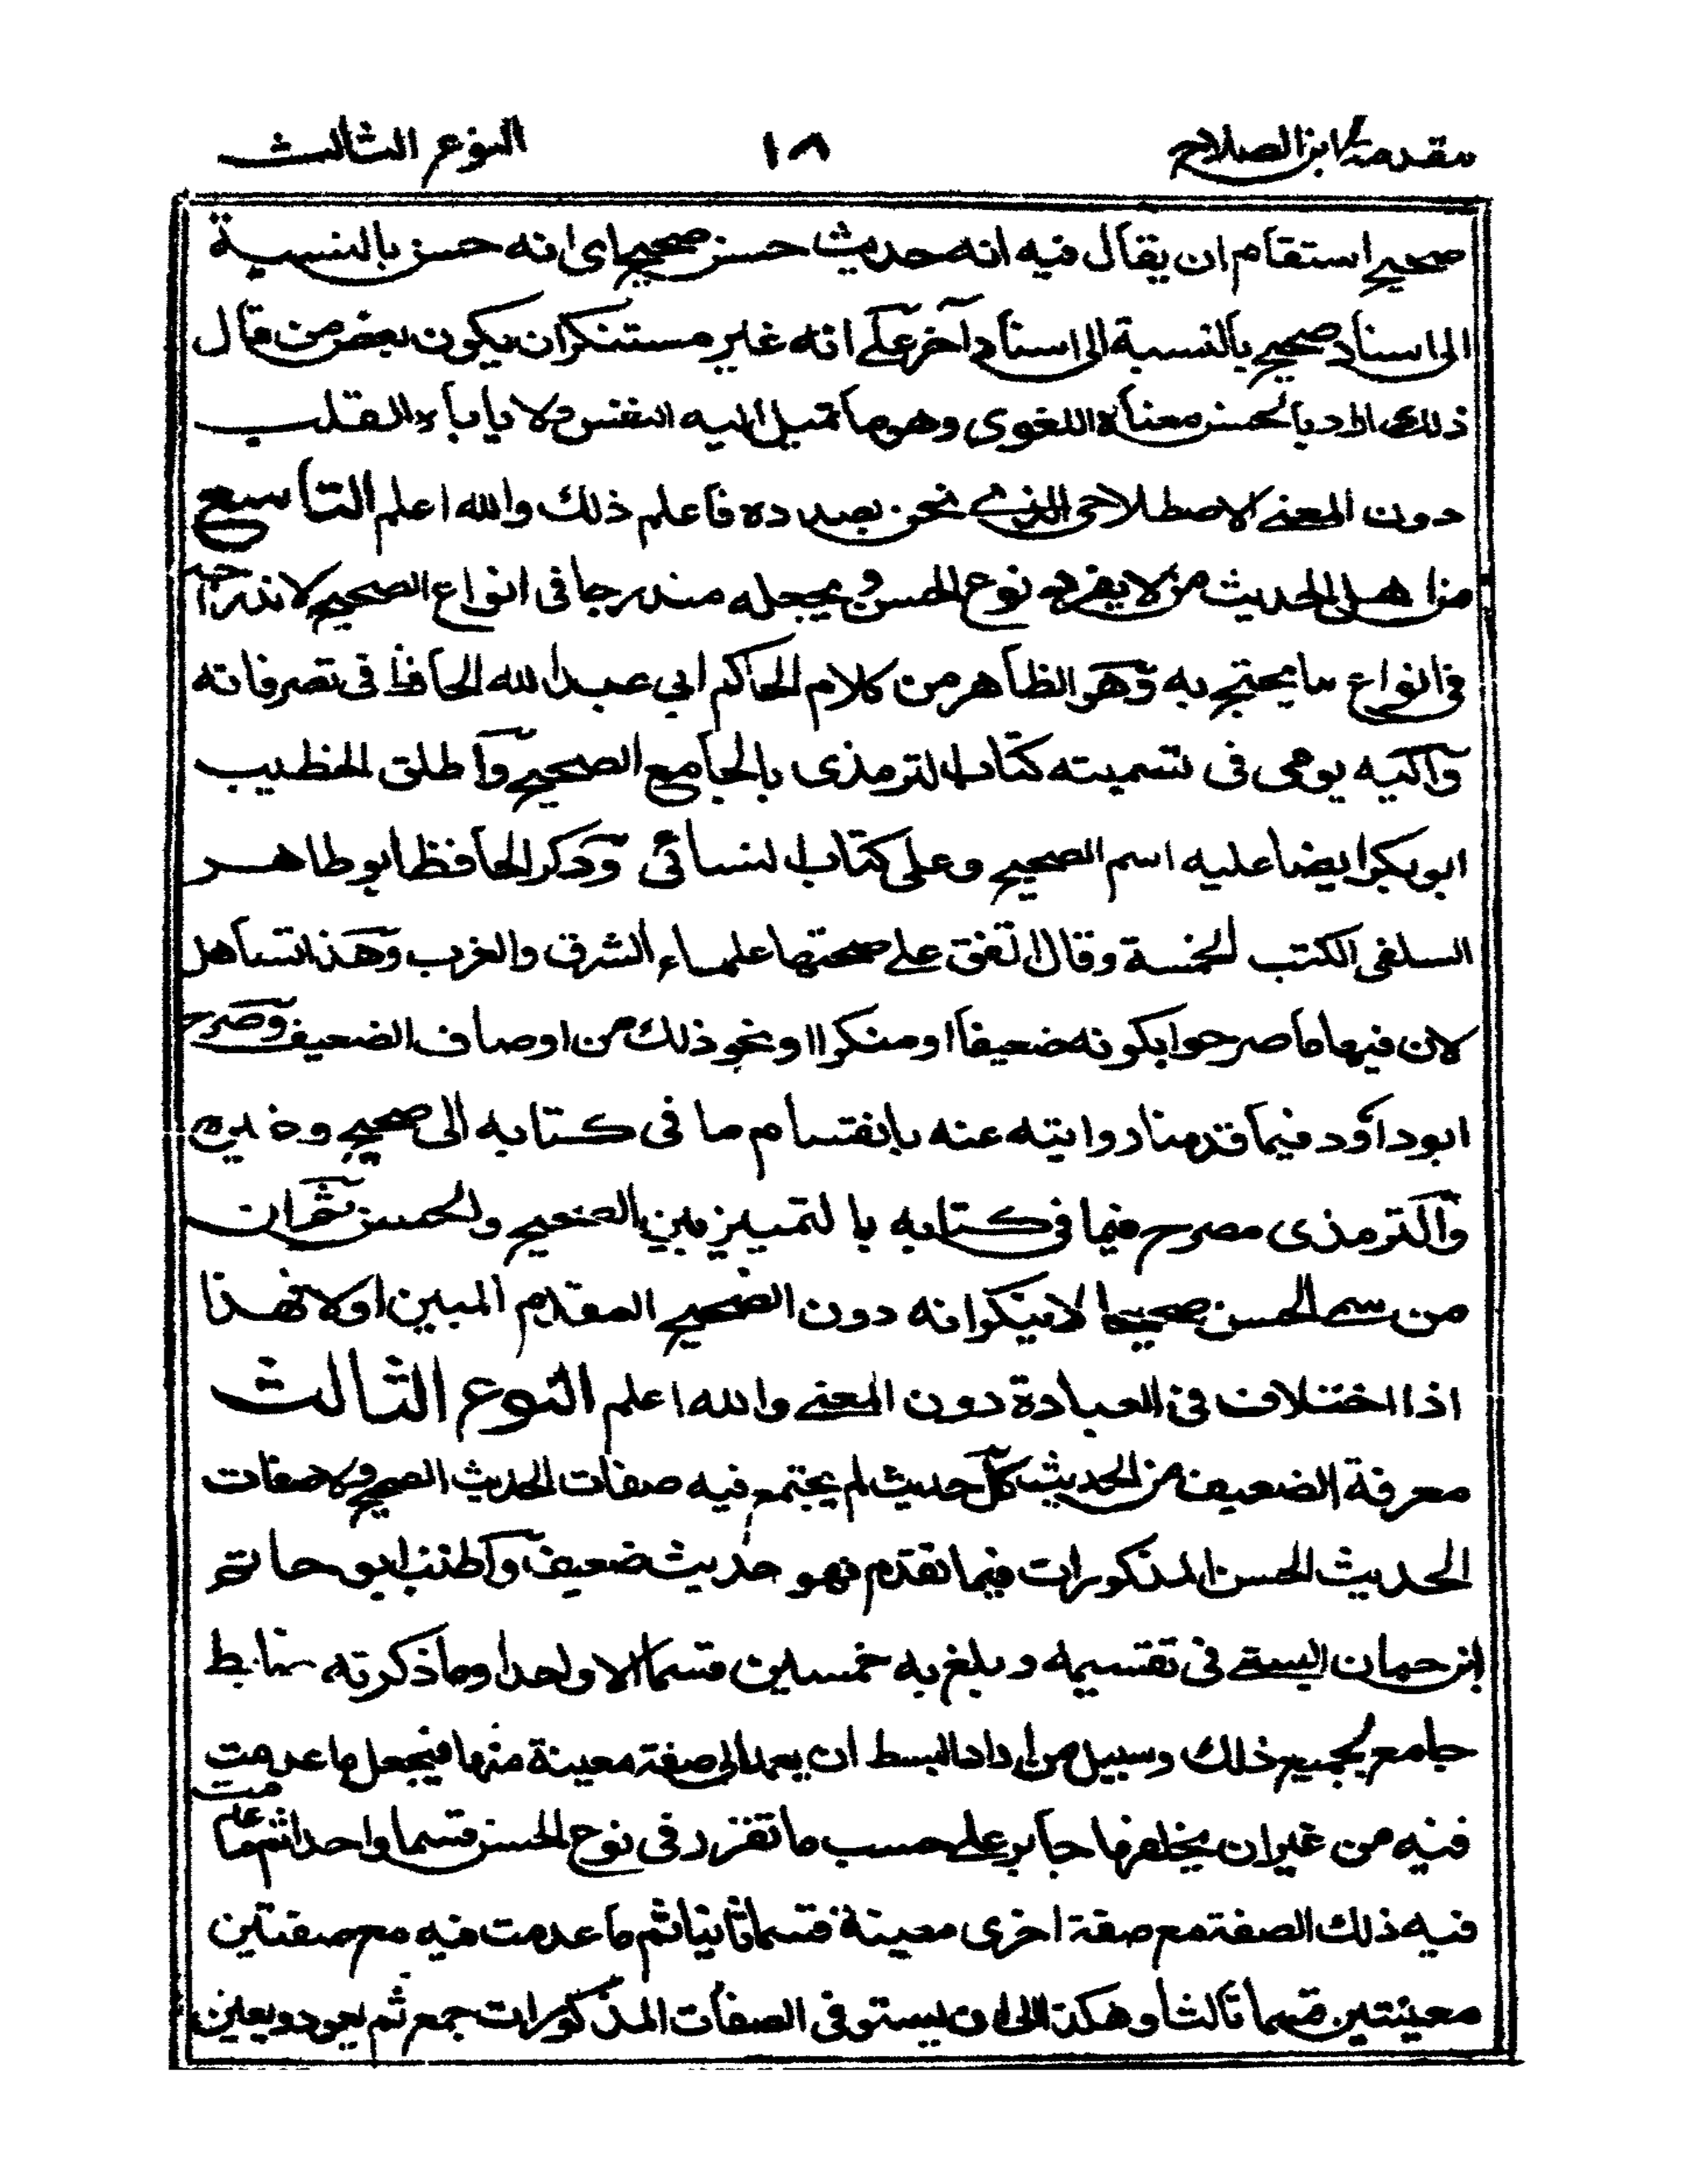 مقدمة ابن الصلاح ١٨ النوع الثالث
صحيح استقام ان يقال فيه انه حديث حسن صحيح اى انه حسن بالنسبة
الى اسناد صحيح بالنسبة الى اسناد آخر على انه غير مستنكر ان يكون بعض من قال
ذلك اراد بالحسن معناه اللغوى وهو ما تميل اليه النفس ولا ياباه القلب
دون المعنى الاصطلاحى الذى نحن بصدده فاعلم ذلك والله اعلم التاسع
من اهل الحديث من لا يفرد نوع الحسن و يجعله مندرجا فى انواع الصحيح لاندراجه
فى انواع ما يحتج به وهو الظاهر من كلام الحاكم ابى عبد الله الحافظ فى تصرفاته
واليه يومى فى تسميته كتاب الترمذى بالجامع الصحيح واطلق الخطيب
ابو بكر ايضا عليه اسم الصحيح وعلى كتاب النسائى وذكر الحافظ ابو طاهر
السلفى الكتب الخمسة وقال اتفق على صحتها علماء الشرق والغرب وهذا تساهل
لان فيها ما صرحوا بكونه ضعيفا او منكرا او نحو ذلك من اوصاف الضعيف وصرح
ابو داود فيما قدمنا روايته عنه بانقسام ما فى كتابه الى صحيح وغيره
والترمذى مصرح فيما فى كتابه بالتمييز بين الصحيح والحسن ثم ان
من سمى الحسن صحيحا لا ينكر انه دون الصحيح المقدم المبين اولا فهذا
اذا اختلاف فى العبارة دون المعنى والله اعلم النوع الثالث
معرفة الضعيف من الحديث كل حديث لم يجتمع فيه صفات الحديث الصحيح ولا صفات
الحديث الحسن المذكورات فيما تقدم فهو حديث ضعيف واطنب ابو حاتم
ابن حبان البستى فى تقسيمه و بلغ به خمسين قسما الا واحدا وما ذكرته ضابط
جامع لجميع ذلك وسبيل من اراد البسط ان يعمد الى صفة معينة منها فيجعل ما عدمت
فيه من غير ان يخلفها جابر على حسب ما تقرر فى نوع الحسن قسما واحدا ثم ما عدمت
فيه ذلك الصفة مع صفة اخرى معينة قسما ثانيا ثم ما عدمت فيه مع صفتين
معينتين قسما ثالثا وهكذا الى ان يستوفى الصفات المذكورات جمع ثم يعود ويعين